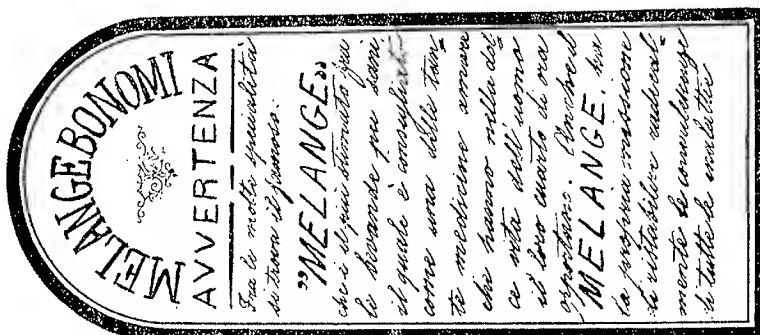 MELANGE BONOMI
AVVERTENZA
Fra le molte specialità
si trova il famoso:
"MELANGE"
che è il più stimato fra
le bevande più sani,
il quale è consigliato
come una delle tan=
te medicine amare
che hanno nella dol=
ce vita dell'uomo
il loro cuarto di ora
Anche il
MELANGE, ha
la propria missione
di ristabilire radical=
mente le
di tutte le malattie